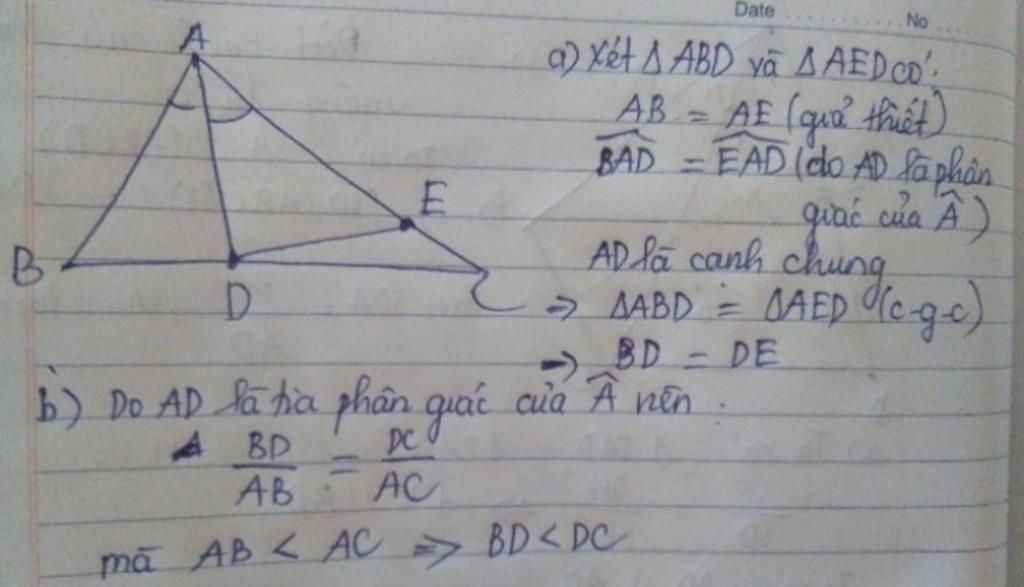 Date ........ No ....
A
B
D
E
C
a) Xét Δ ABD và Δ AED có:
AB = AE (giả thiết)
\widehat{BAD} = \widehat{EAD} (do AD là phân
giác của Â)
AD là cạnh chung
=> ΔABD = ΔAED (c-g-c)
=> BD = DE
b) Do AD là tia phân giác của  nên.
BD/AB = DC/AC
mà AB < AC => BD < DC